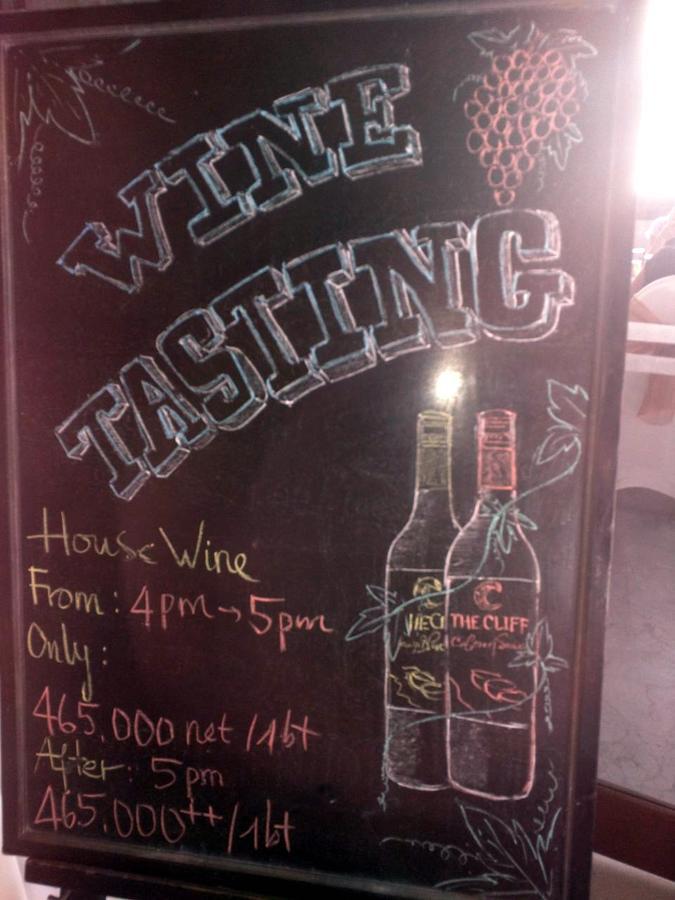 WINE
TASTING
House Wine
From: 4pm → 5pm
Only:
465.000 net /1bt
After: 5pm
465.000++ /1bt
THE CLIFF